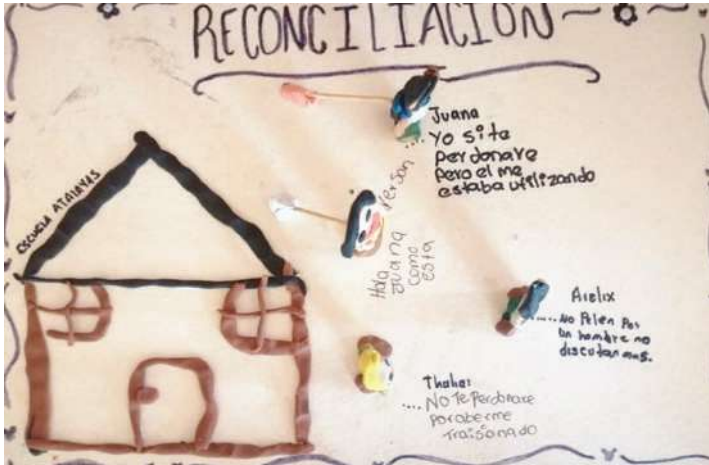 RECONCILIACIÓN
ESCUELA ATALAYAS
Juana
.... Yo si te
perdonare
pero el me
estaba utilizando
Yerson
Hola
Juana
como
esta
Arelix
..... No Pelen Por
un hombre no
discutan mas.
Thalia:
.... No Te Perdonare
por aberme
Traisionado